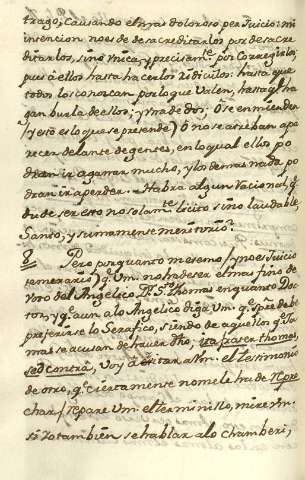 trago, causando el mas doloroso perjuicio: mi
intencion no es de desacreditarlos por desacre
ditarlos, sino unica, y precisamte. por corregirlos,
pues à ellos hasta hacerlos ridiculos: hasta que
todos los conozcan por lo que valen, hasta q. ha
gan burla de ellos; y una de dos, ò se enmienden
(y esto es lo que se pretende) Ò no se atreban apa
recer delante de gentes, en lo qual ellos po
dran ir a ganar mucho, y los demas nada po
dran ir a perder. Habrà algun racional, q.
dude ser esto no solamte. licito sino laudable,
Santo, y sumamente meritorio?
8 Pero por quanto me temo (y no es Juicio
temerario) q. Vm. no ha de ser el mas fino de
voto del Angelico Dr. Sto. Thomas en quanto Doc
tor, y q. aun a lo Angelico diga Vm. q. spre. debe
preferirse lo Serafico, siendo de aquellos q. Ja
mas se acusan de haver dho, ita frater Thomas,
sed contra, voy à citar a Vm. el testimonio
de otro, q. ciertamente no me le ha de repre
char (repare Vm. el terminillo, mire Vm.
si Yo tambien se hablar a lo chamberi,